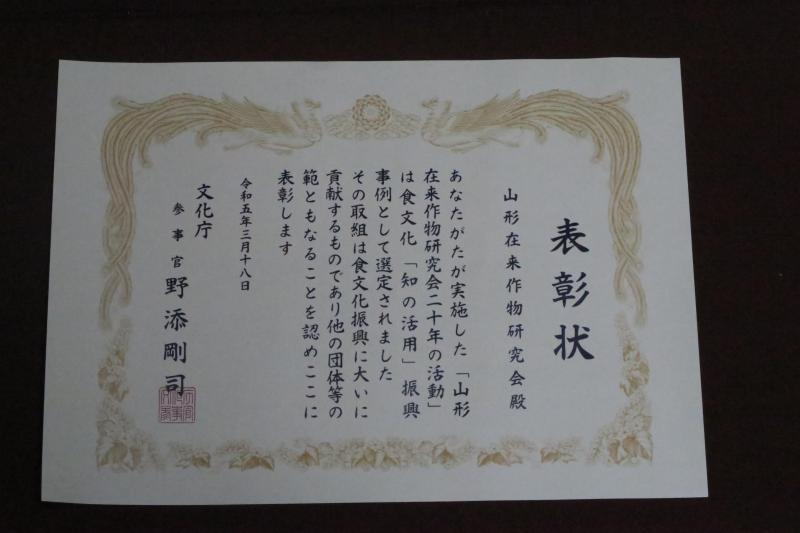 表彰状
山形在来作物研究会殿
あなたがたが実施した「山形
在来作物研究会二十年の活動」
は食文化「知の活用」振興
事例として選定されました
その取組は食文化振興に大いに
貢献するものであり他の団体等の
範ともなることを認めここに
表彰します
令和五年三月十八日
文化庁
参事官 野添剛司